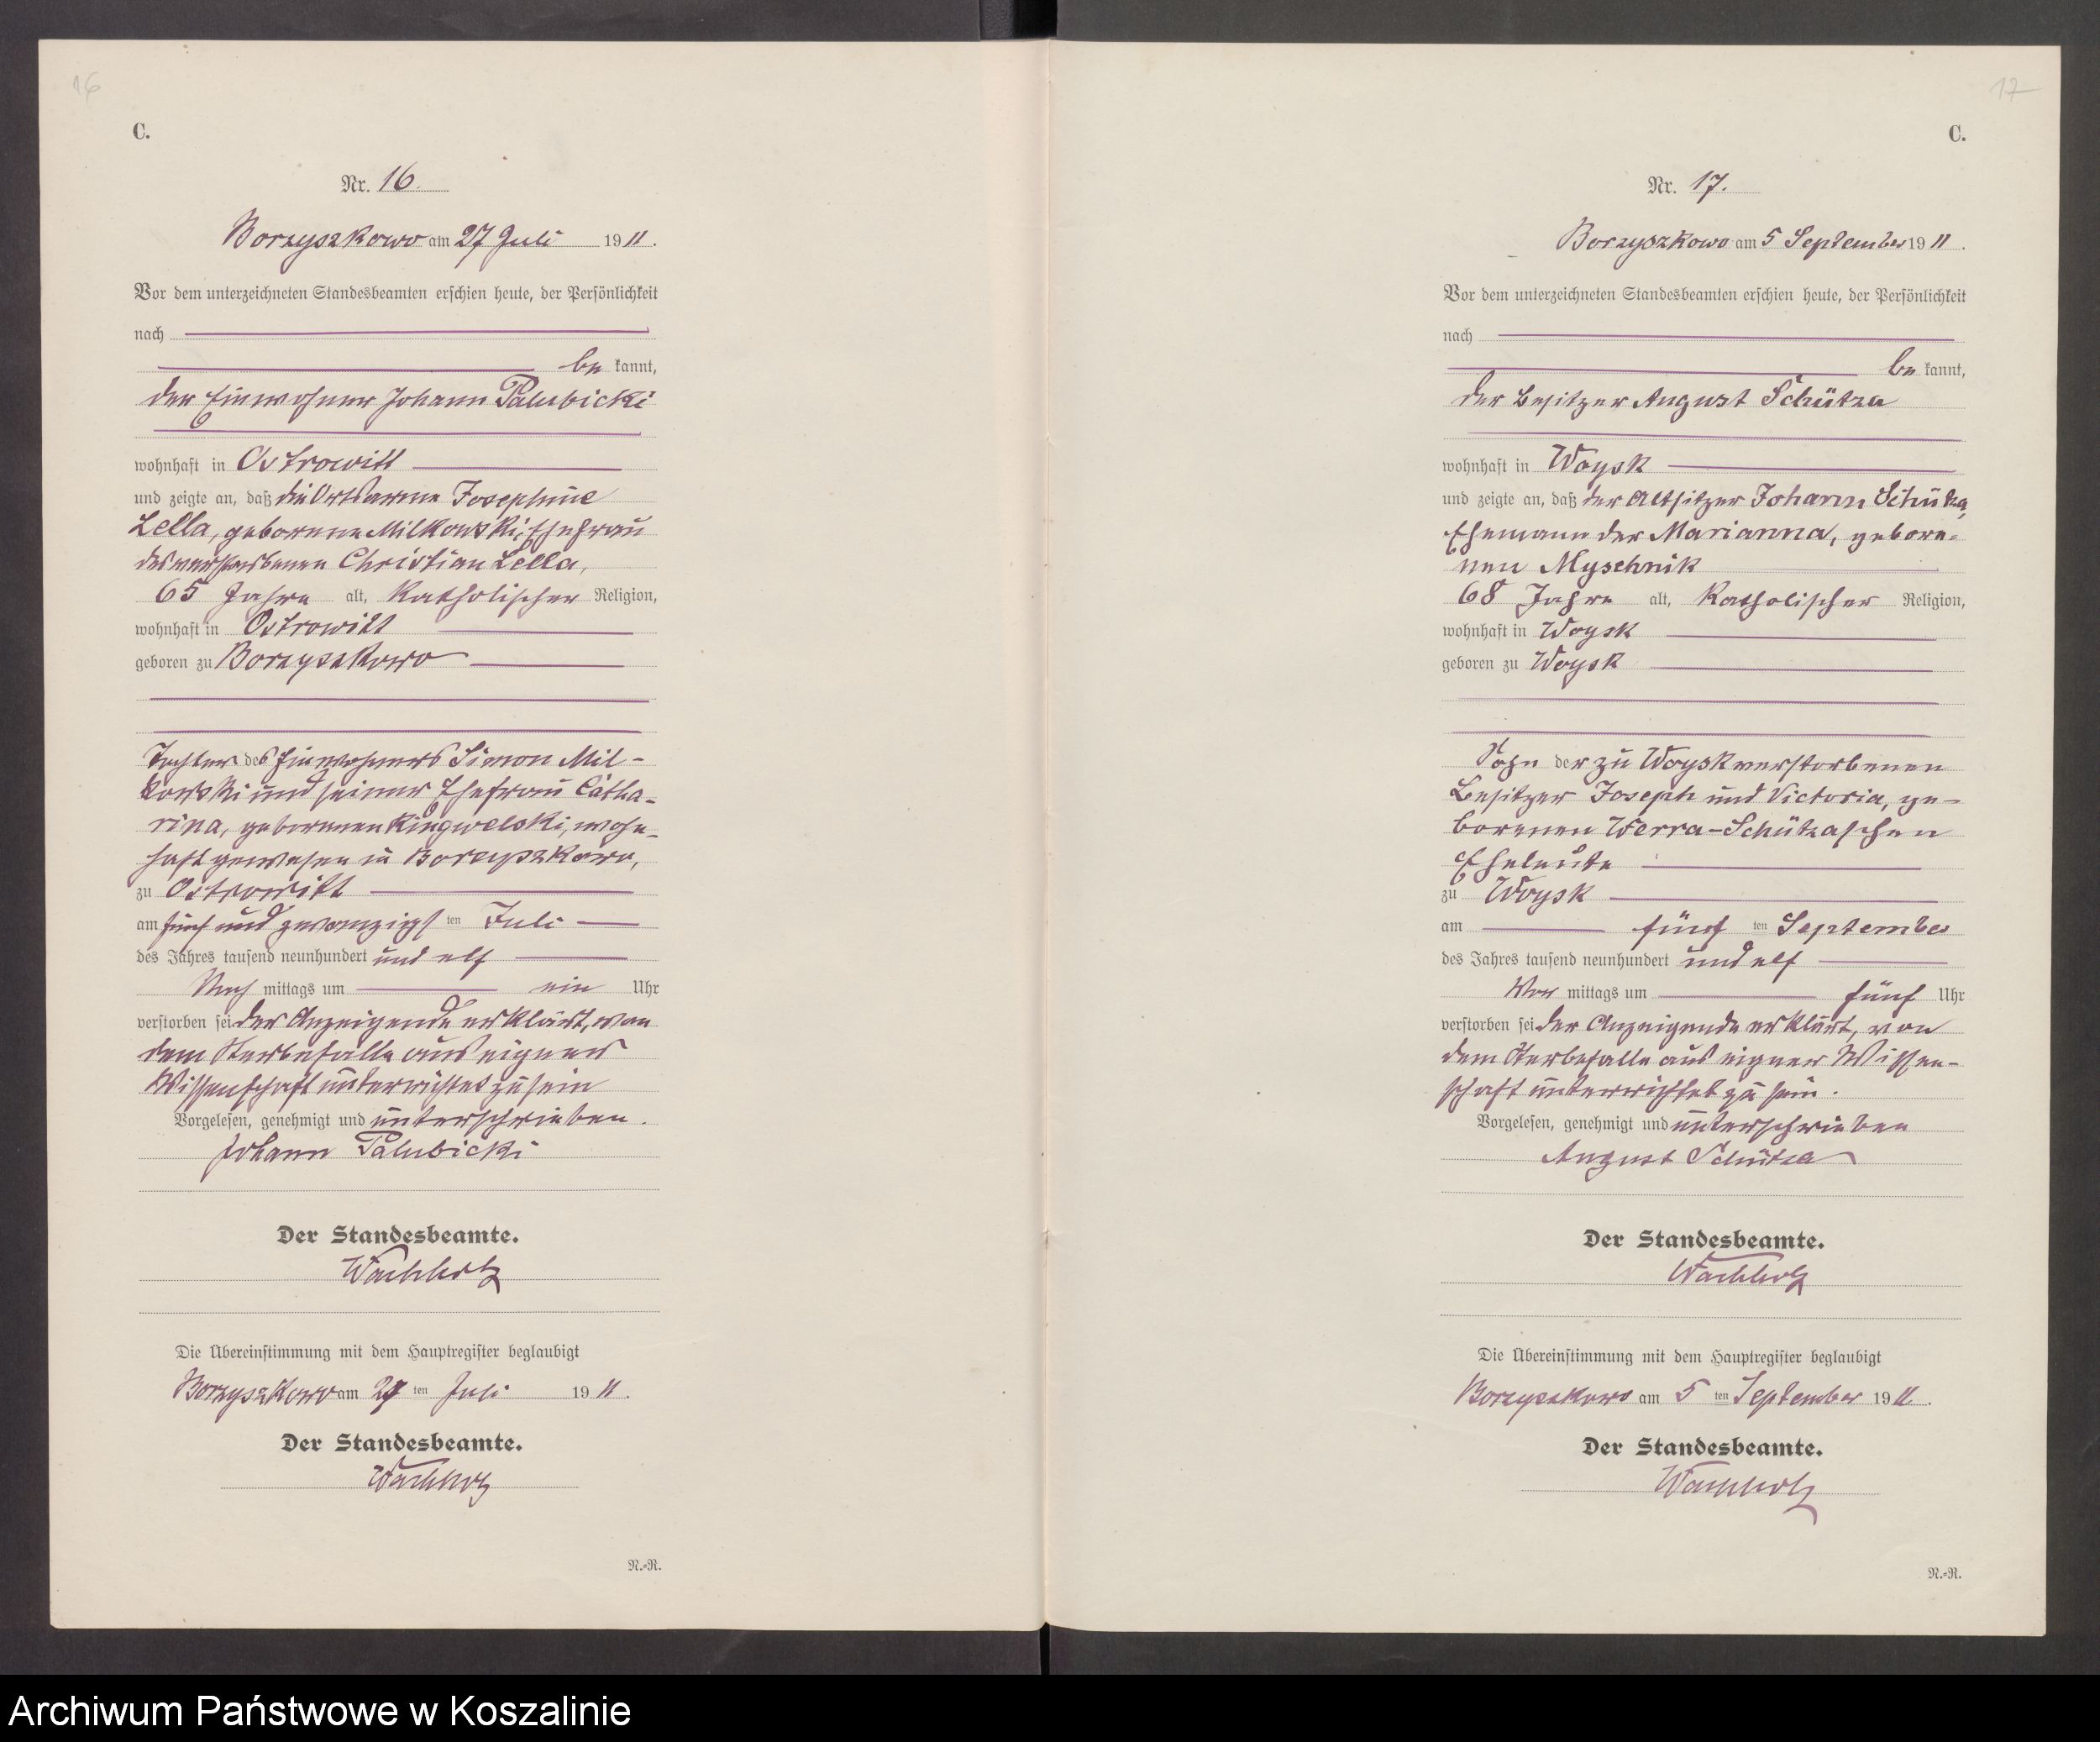 16
C.
Nr. 16.
Borzyszkowo am 27 Juli 1911.
Vor dem unterzeichneten Standesbeamten erschien heute, der Persönlichkeit
nach
be kannt,
der Einwohner Johann Palubicki
wohnhaft in Ostrowitt
und zeigte an, daß die Ortsarme Josephine
Lella, geborene Milkowski, Ehefrau
des verstorbenen Christian Lella,
65 Jahre alt, katholischer Religion,
wohnhaft in Ostrowitt
geboren zu Borzyszkowo
Tochter des Einwohners Simon Mil-
kowski und seiner Ehefrau Catha-
rina, geborenen Kingwelski, wohn-
haft gewesen in Borzyszkowo,
zu Ostrowitt
am fünf und zwanzigs ten Juli
des Jahres tausend neunhundert und elf
Nach mittags um ein Uhr
verstorben sei der Anzeigende erklärt, von
dem Sterbefalle aus eigner
Wissenschaft unterrichtet zu sein
Vorgelesen, genehmigt und unterschrieben.
Johann Palubicki
Der Standesbeamte.
Wachholz
Die Übereinstimmung mit dem Hauptregister beglaubigt
Borzyszkowo am 27 ten Juli 1911.
Der Standesbeamte.
Wachholz
N.-R.
17
C.
Nr. 17.
Borzyszkowo am 5 September 1911.
Vor dem unterzeichneten Standesbeamten erschien heute, der Persönlichkeit
nach
be kannt,
der Besitzer August Schütza
wohnhaft in Woysk
und zeigte an, daß der Altsitzer Johann Schütza,
Ehemann der Marianna, gebore-
nen Myschnik
68 Jahre alt, katholischer Religion,
wohnhaft in Woysk
geboren zu Woysk
Sohn der zu Woysk verstorbenen
Besitzer Joseph und Victoria, ge-
borenen Werra-Schützaschen
Eheleute
zu Woysk
am fünf ten September
des Jahres tausend neunhundert und elf
Vor mittags um fünf Uhr
verstorben sei der Anzeigende erklärt, von
dem Sterbefalle aus eigner Wissen-
schaft unterrichtet zu sein.
Vorgelesen, genehmigt und unterschrieben
August Schütza
Der Standesbeamte.
Wachholz
Die Übereinstimmung mit dem Hauptregister beglaubigt
Borzyszkowo am 5 ten September 1911.
Der Standesbeamte.
Wachholz
N.-R.
Archiwum Państwowe w Koszalinie